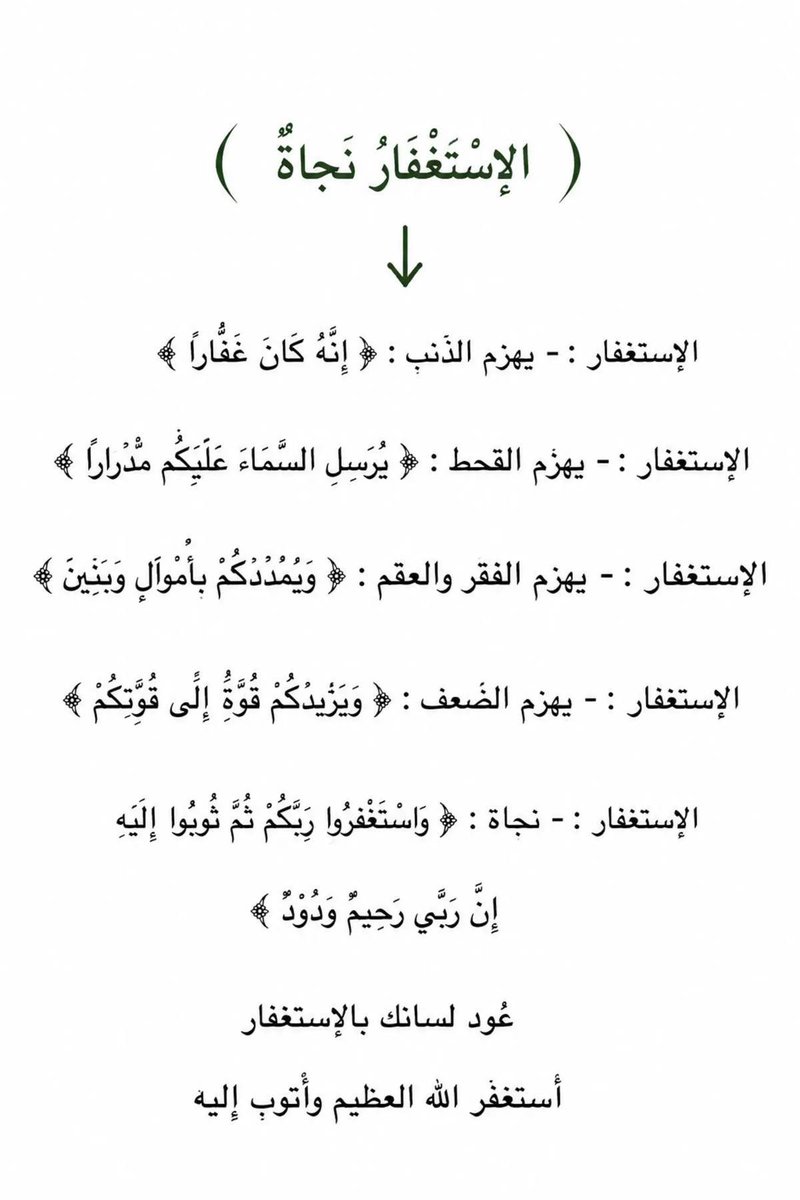 ( الإسْتَغْفَارُ نَجاةٌ )
الإستغفار : - يهزم الذَنب : ﴿ إِنَّهُ كَانَ غَفُّاراً ﴾
الإستغفار : - يهزم القحط : ﴿ يُرَسِلِ السَّمَاءَ عَلَيَكُم مُّدْراراً ﴾
الإستغفار : - يهزم الفقر والعقم : ﴿ وَيُمُدْدْكُمْ بِأُمْواَلٍ وَبَنِينَ ﴾
الإستغفار : - يهزم الضَعف : ﴿ وَيَزْيدُكُمْ قُوَّةً إِلَى قُوَّتِكُمْ ﴾
الإستغفار : - نجاة : ﴿ وَاسْتَغْفرُوا رَبَّكُمْ ثُمَّ ثُوبُوا إِلَيَهِ
إِنَّ رَبَّي رَحِيمٌ وَدُوْدٌ ﴾
عُود لسانك بالإستغفار
أستغفر الله العظيم وأتوب إليه